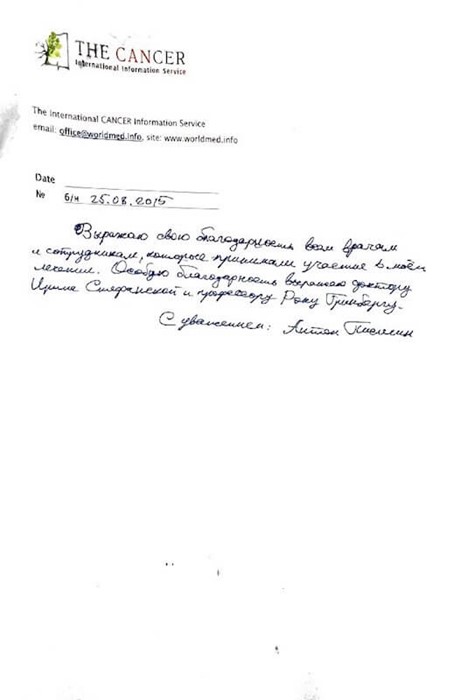 THE CANCER
International Information Service
The International CANCER Information Service
email: office@worldmed.info, site: www.worldmed.info
Date
№ б/н 25.08.2015
Выражаю свою благодарность всем врачам
и сотрудникам, которые принимали участие в моём
лечении. Особую благодарность выражаю доктору
Ирине Стефанской и профессору Року Гринбергу.
С уважением: Антон